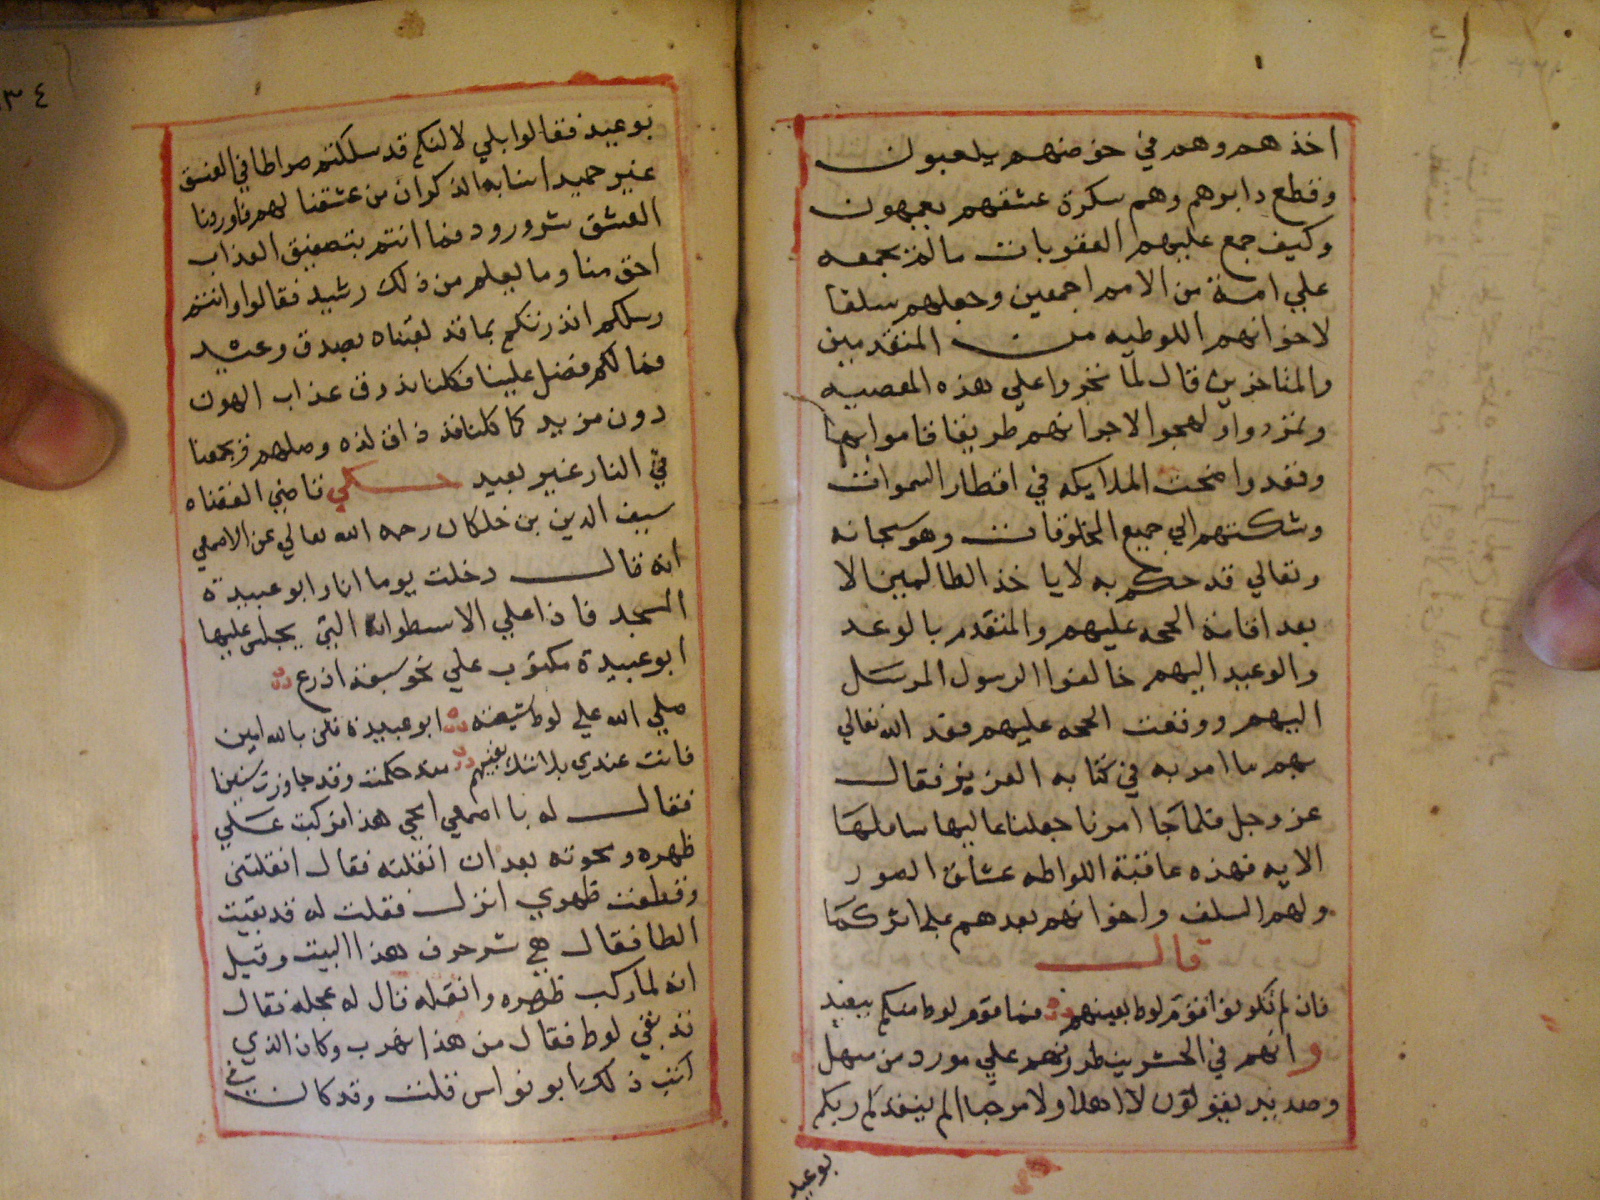 اخذهم وهم في خوضهم يلعبون
وقطع دابرهم وهم سكرة عشقهم يعمهون
وكيف جمع عليهم العقوبات ما لم يجمعه
علي امة من الامم اجمعين وجعلهم سلفا
لاخوانهم اللوطيه من المتقدمين
والمتاخرين قال لما تجروا علي هذه المعصيه
وتمردوا ولهجوا لاخوانهم طريقا قاموا بها
وقعدوا ضجت الملايكه في اقطار السموات
وشكتهم الي جميع المخلوقات وهو سبحانه
وتعالي قد حكم به لا ياخذ الظالمين الا
بعد اقامة الحجه عليهم والمتقدم بالوعد
والوعيد اليهم خالفوا الرسول المرسل
اليهم ووقعت الحجه عليهم فقد الله تعالي
بهم ما امر به في كتابه العزيز فقال
عز وجل فلما جا امرنا جعلنا عاليها سافلها
الايه فهذه عاقبة اللواطه عشاق الصور
ولهم السلف واخوانهم بعدهم علي اثر كما
قال
فان لم تكونوا قوم لوط بعينهم فما قوم لوط منكم ببعيد
وانهم في الخسر ينظرونهم علي مورد من مهل
وصديد يقولون لا اهلا ولا مرحبا الم ينفدكم ربكم
بوعيد
٣٤
بوعيد فقالوا بلي لاكنكم قد سلكتم صراطا في العشق
غير حميد اتنا به الذكران من عشقنا لهم فاوردنا
العشق شر ورود فما انتم بتضعيف العذاب
احق منا وما لعلم من ذلك رشيد فقالوا وانتم
رسلكم انذرتكم بما قد لقيناه بصدق وعيد
فما لكم فضل علينا فكلنا نذوق عذاب الهون
دون مزيد كما كلنا قد ذاق لذه وصلهم فجمعنا
في النار غير بعيد حكي قاضي القضاه
سيف الدين بن خلكان رحمه الله تعالي عن الاصمعي
انه قال دخلت يوما انا وابو عبيدة
المسجد فاذا علي الاسطوانه التي يجلس عليها
ابو عبيدة مكتوب علي نحو سبعة اذرع
صلي الله علي لوط وشيعته ابو عبيدة قل بالله امين
فانت عندي بلا شك بقيتهم منذ حكمت وقد جاوزت سبعينا
فقال له يا اصمعي امحي هذا فركبت علي
ظهره ومحوته بعد ان اثقلته فقال اثقلتني
وقطعت ظهري انزل فقلت له قد بقيت
الطا فقال هي شر حروف هذا البيت وقيل
انه لما ركب ظهره واثقله قال له عجله فقال
قد بقي لوط فقال من هذا نهرب وكان الذي
كتب ذلك ابو نواس قلت وقد كان